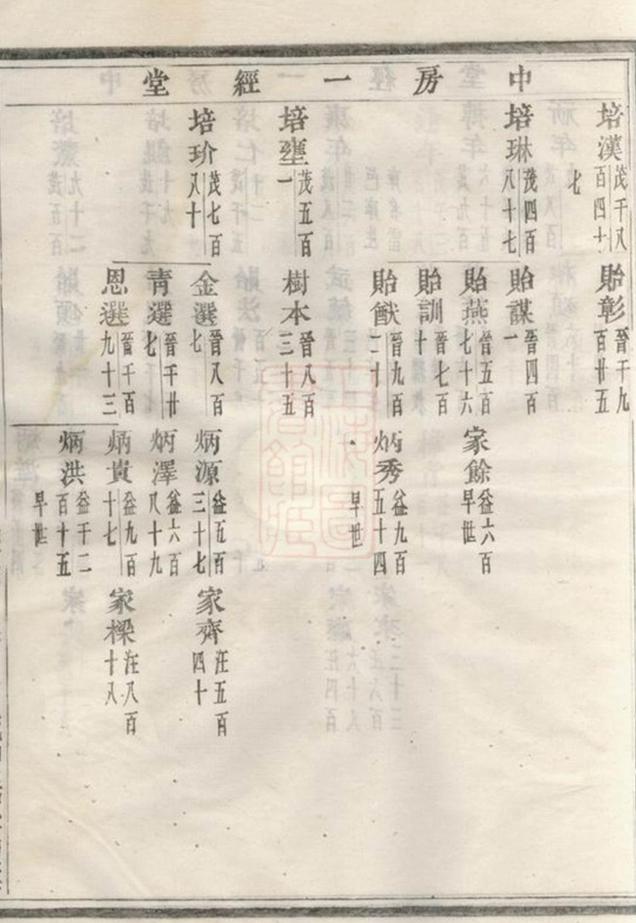 中房一經堂
培漢 茂千八百四十七
貽彰 晉千九百廿五
培琳 茂四百八十七
貽謀 晉四百一
貽燕 晉五百七十六
家餘 益六百 早世
貽訓 晉七百十
貽猷 晉九百二十
炳秀 益九百五十四 早世
培壅 茂五百一
樹本 晉八百三十五
培玠 茂七百八十
金選 晉八百七
炳源 益五百三十七
家齊 汪五百四十
青選 晉千廿七
炳澤 益六百八十九
恩選 晉千百九十三
炳貴 益九百十七
家樑 汪八百十八
炳洪 益千二百十五 早世